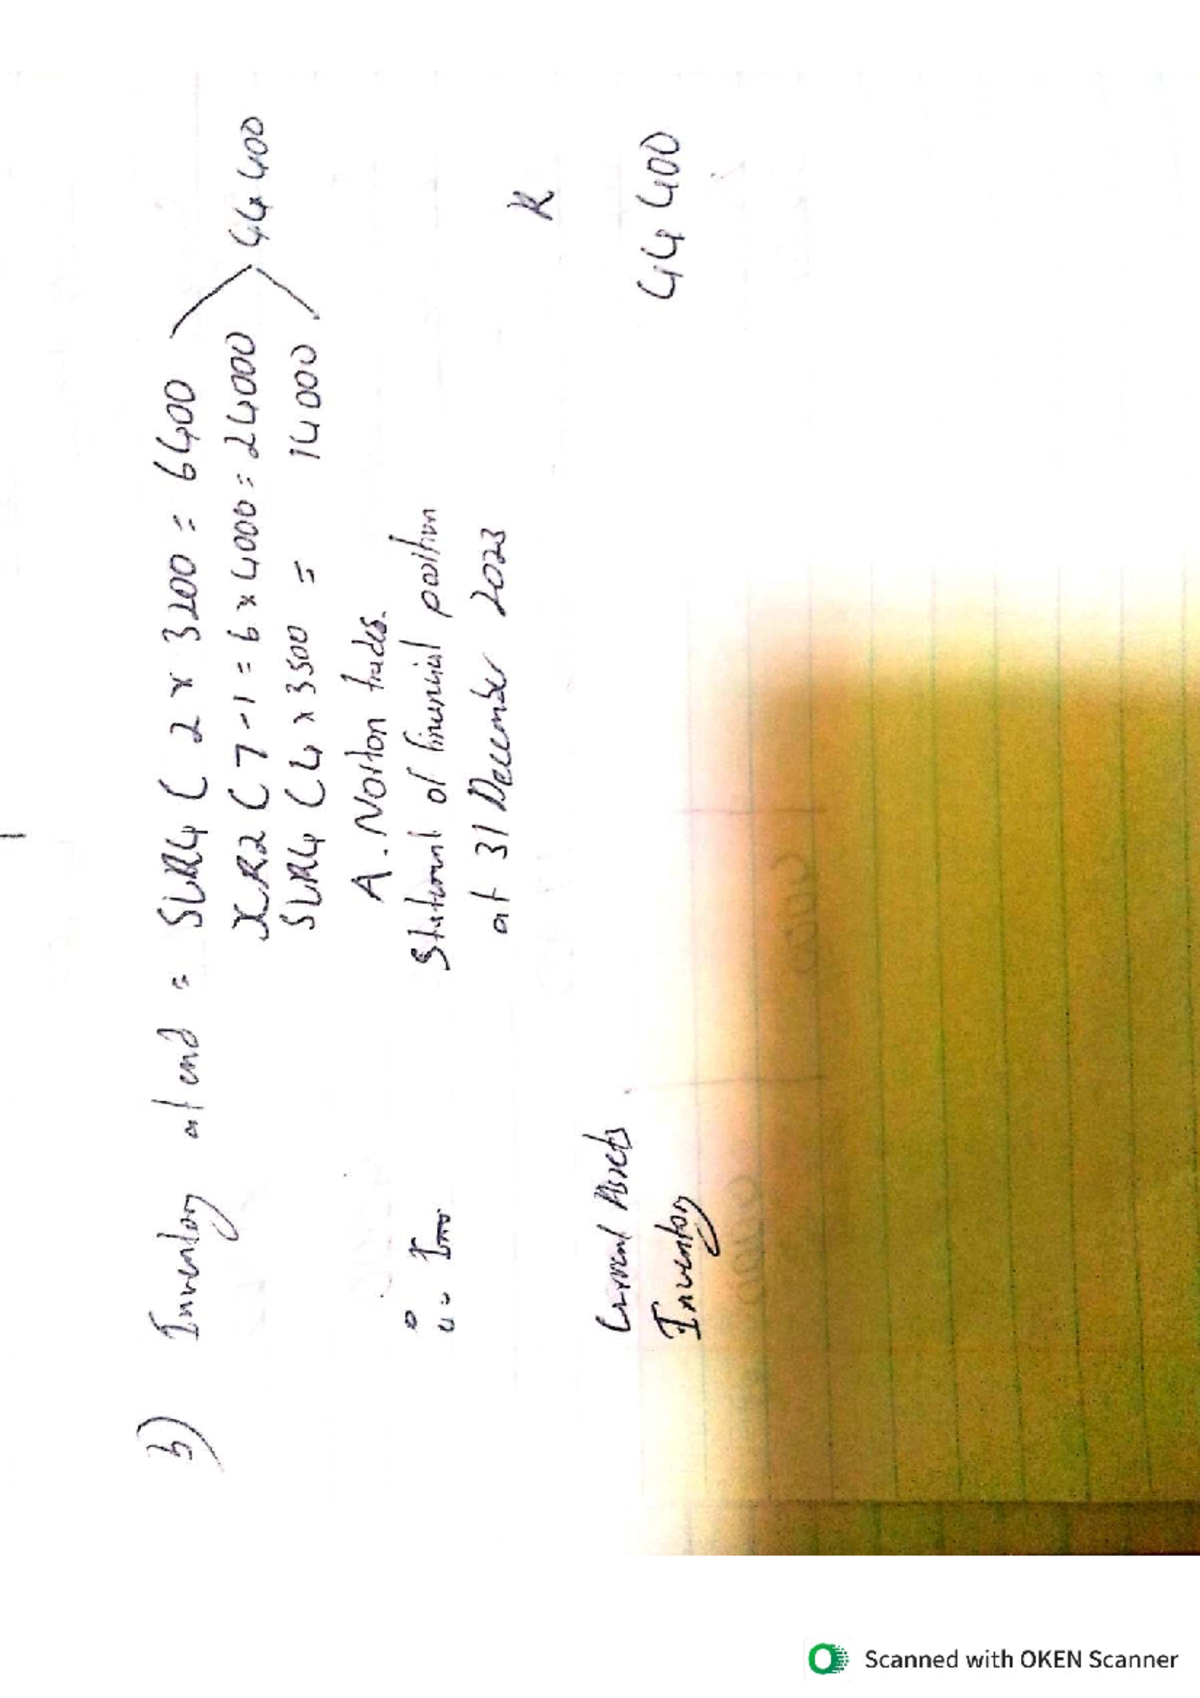 b) Inventory at end = SLR4 ( 2 x 3200 = 6400
XR2 ( 7 - 1 = 6 x 4000 = 24000
44 400
SLR4 ( 4 x 3500 = 14 000
A. Norton traders.
Statement of financial position
at 31 December 2023
R
Current Assets
Inventory 44 400
Scanned with OKEN Scanner